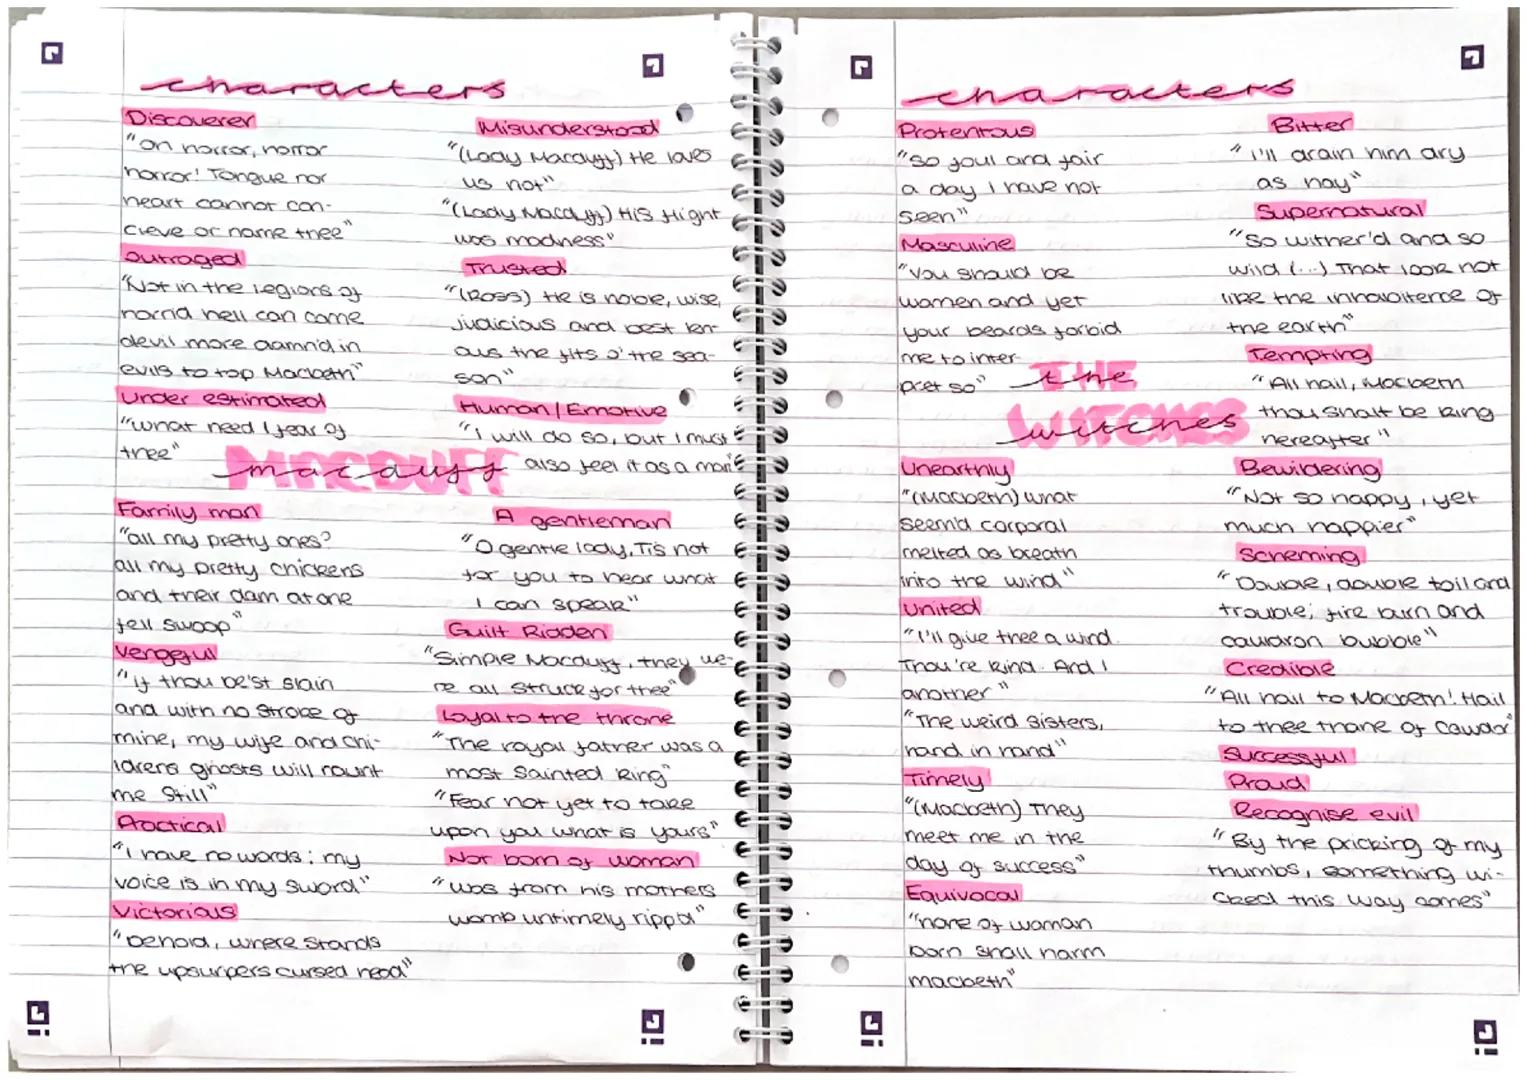 characters
Discoverer
"Oh horror, horror
horror! Tongue nor
heart cannot con-
cieve or name thee"
Outraged
"Not in the legions of
horrid hell can come
devil more damn'd in
evils to top Macbeth"
Under estimated
"what need I fear of
thee"
Misunderstood
"(Lady Macduff) He loves
us not"
"(Lady Macduff) His flight
was madness"
Trusted
"(Ross) He is noble, wise,
judicious and best kn-
ows the fits o' the sea-
son"
Human/Emotive
"I will do so, but I must
also feel it as a man"
MACDUFF
macduff
Family man
"all my pretty ones?
all my pretty chickens
and their dam at one
fell swoop"
Vengeful
"if thou be'st slain
and with no stroke of
mine, my wife and chi-
ldrens ghosts will haunt
me still"
Practical
"I have no words: my
voice is in my sword"
Victorious
"behold, where stands
the upsurpers cursed head"
A gentleman
"O gentle lady, Tis not
for you to hear what
I can speak"
Guilt Ridden
"Simple Macduff, they we-
re all struck for thee"
Loyal to the throne
"The royal father was a
most sainted king"
"Fear not yet to take
upon you what is yours"
Not born of woman
"was from his mothers
womb untimely ripp'd"
characters
Protentous
"so foul and fair
a day I have not
seen"
Masculine
"You should be
women and yet
your beards forbid
me to inter-
pret so"
Bitter
"I'll drain him dry
as hay"
Supernatural
"So wither'd and so
wild (...) That look not
like the inhabitence of
the earth"
Tempting
"All hail, Macbeth
thou shalt be king
hereafter"
THE
the
WITCHES
witches
Unearthly
"(Macbeth) what
seem'd corporal
melted as breath
into the wind"
United
"I'll give thee a wind.
Thou're kind. And I
another"
"The weird sisters,
hand in hand"
Timely
"(Macbeth) They
meet me in the
day of success"
Equivocal
"none of woman
born shall harm
macbeth"
Bewildering
"Not so happy, yet
much happier"
Scheming
"Double, double toil and
trouble; fire burn and
cauldron bubble"
Credible
"All hail to Macbeth! Hail
to thee thane of Cawdor"
Successful
Proud
Recognise evil
"By the pricking of my
thumbs, something wi-
cked this way comes"